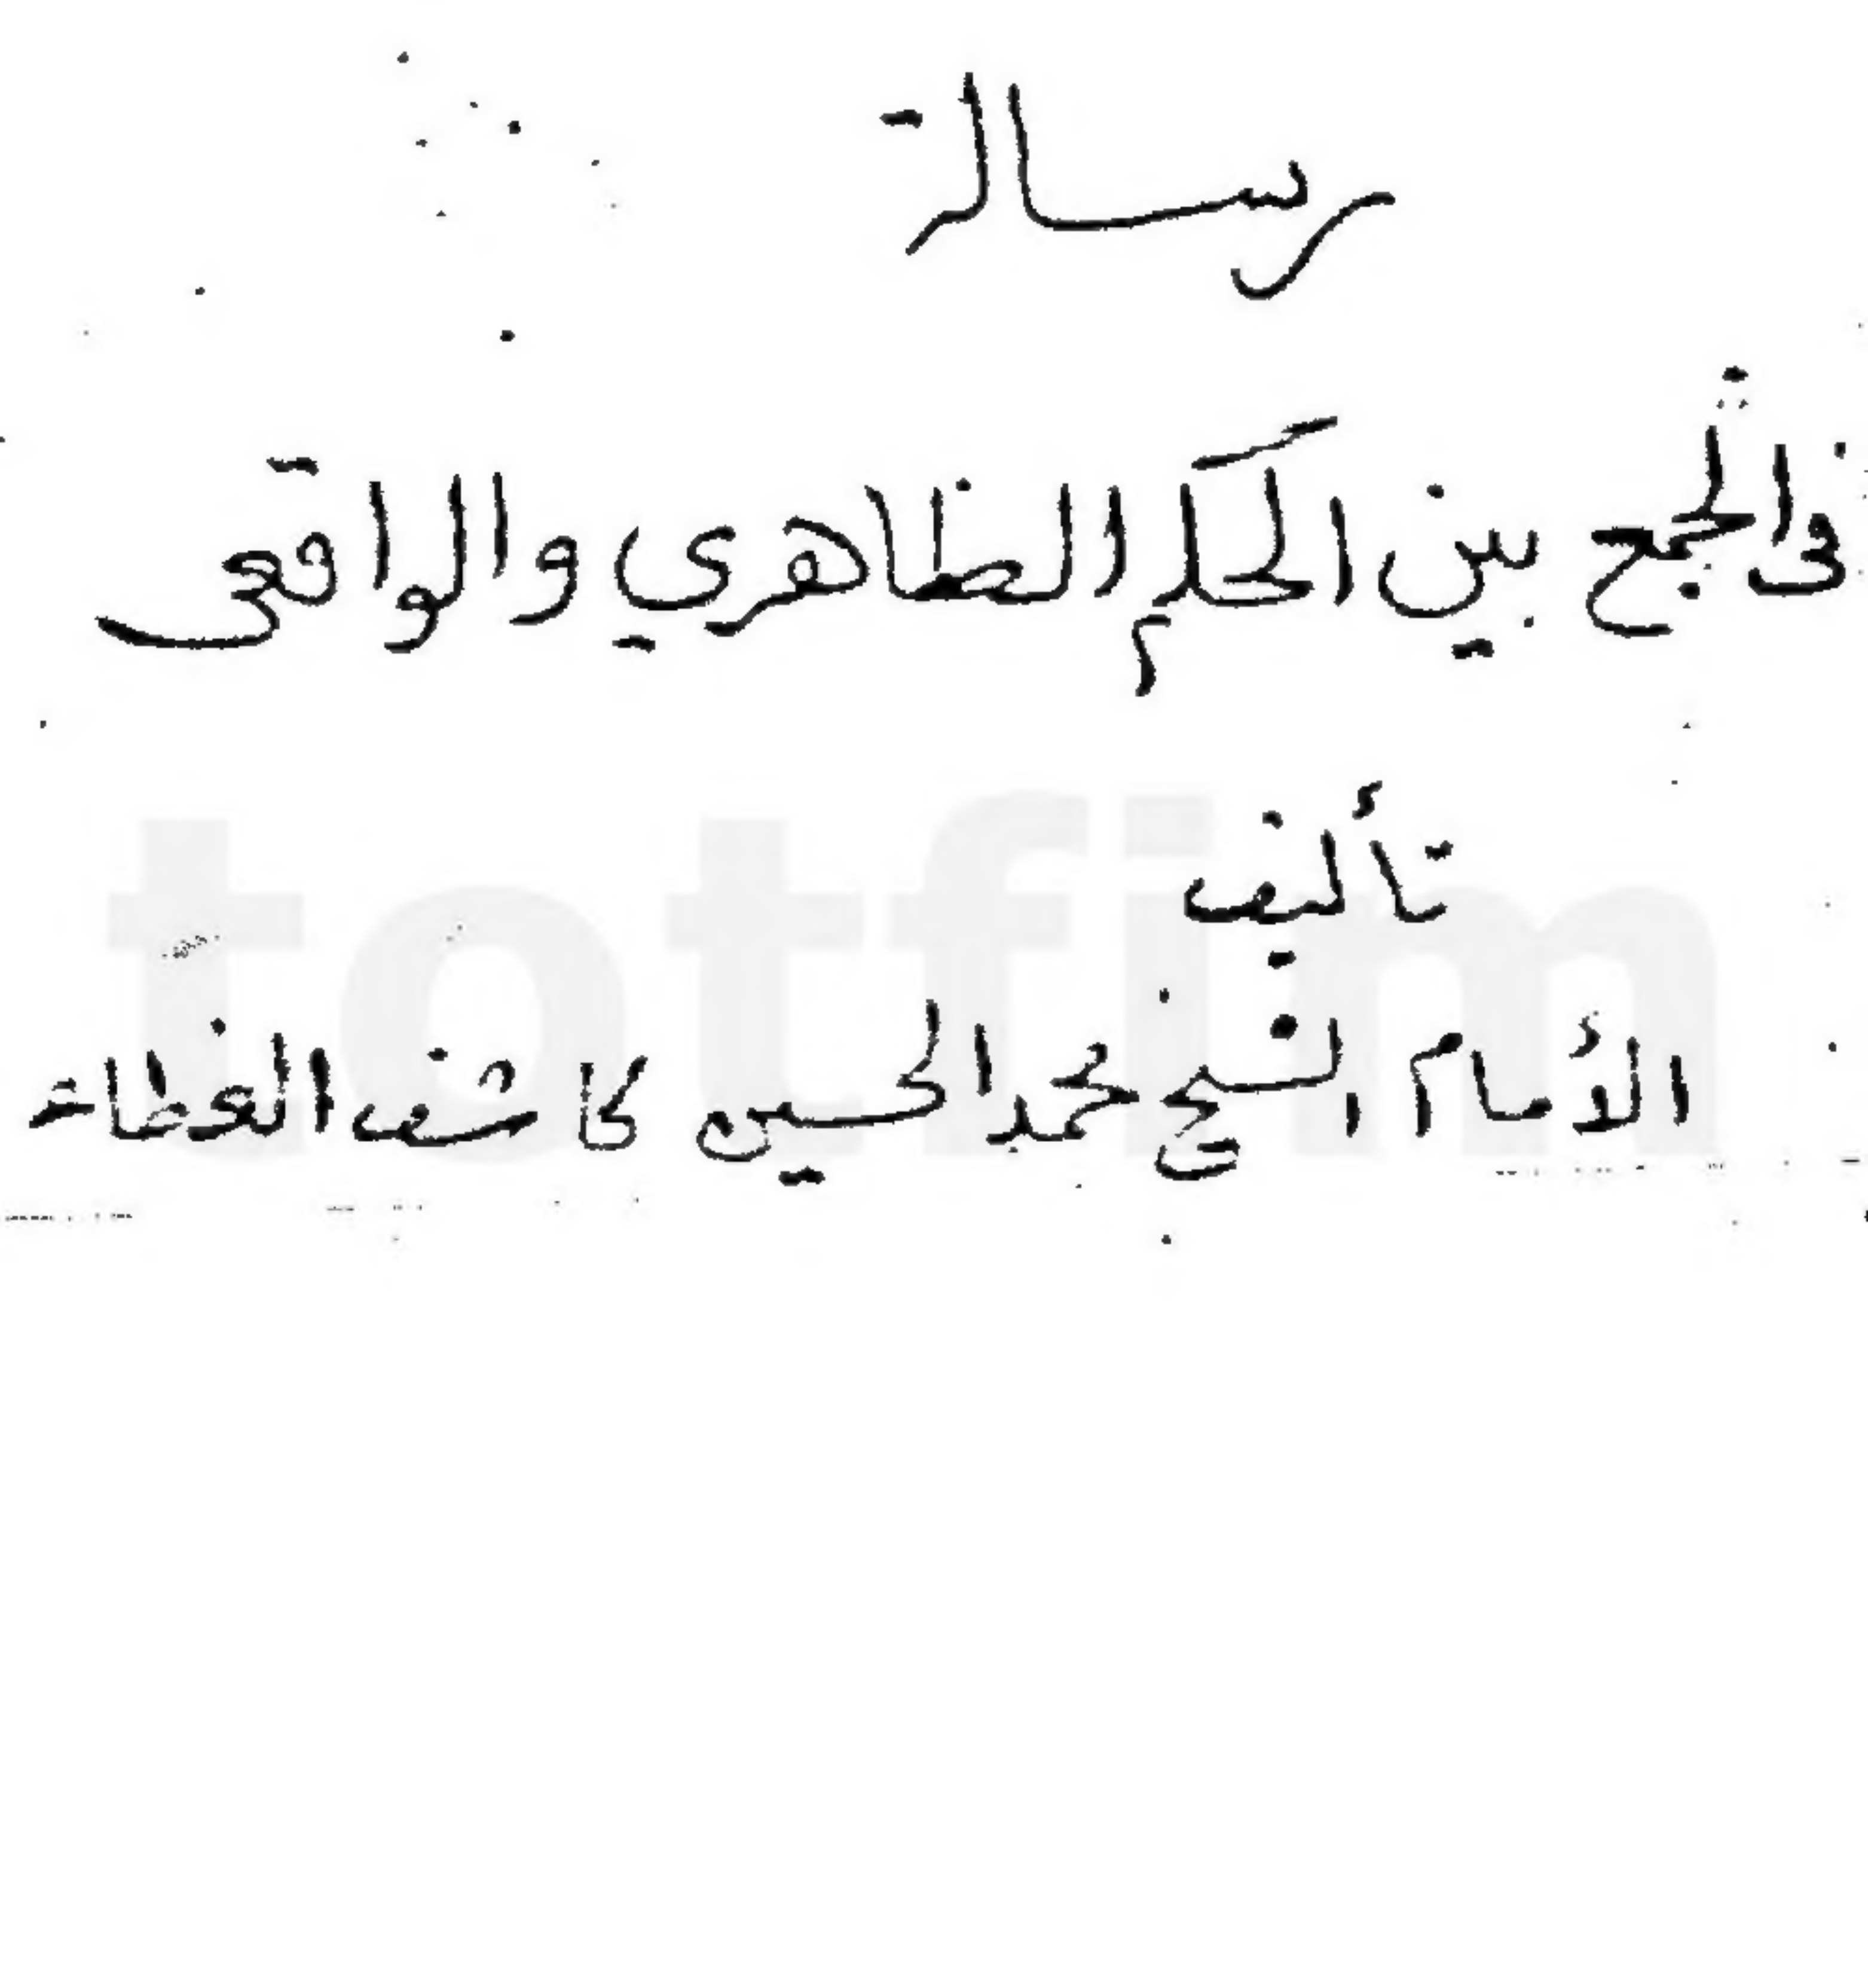 رسالة
في الجمع بين الحكم الظاهري والواقعي
تأليف
الأمام الشيخ محمد الحسين كاشف الغطاء
totfim